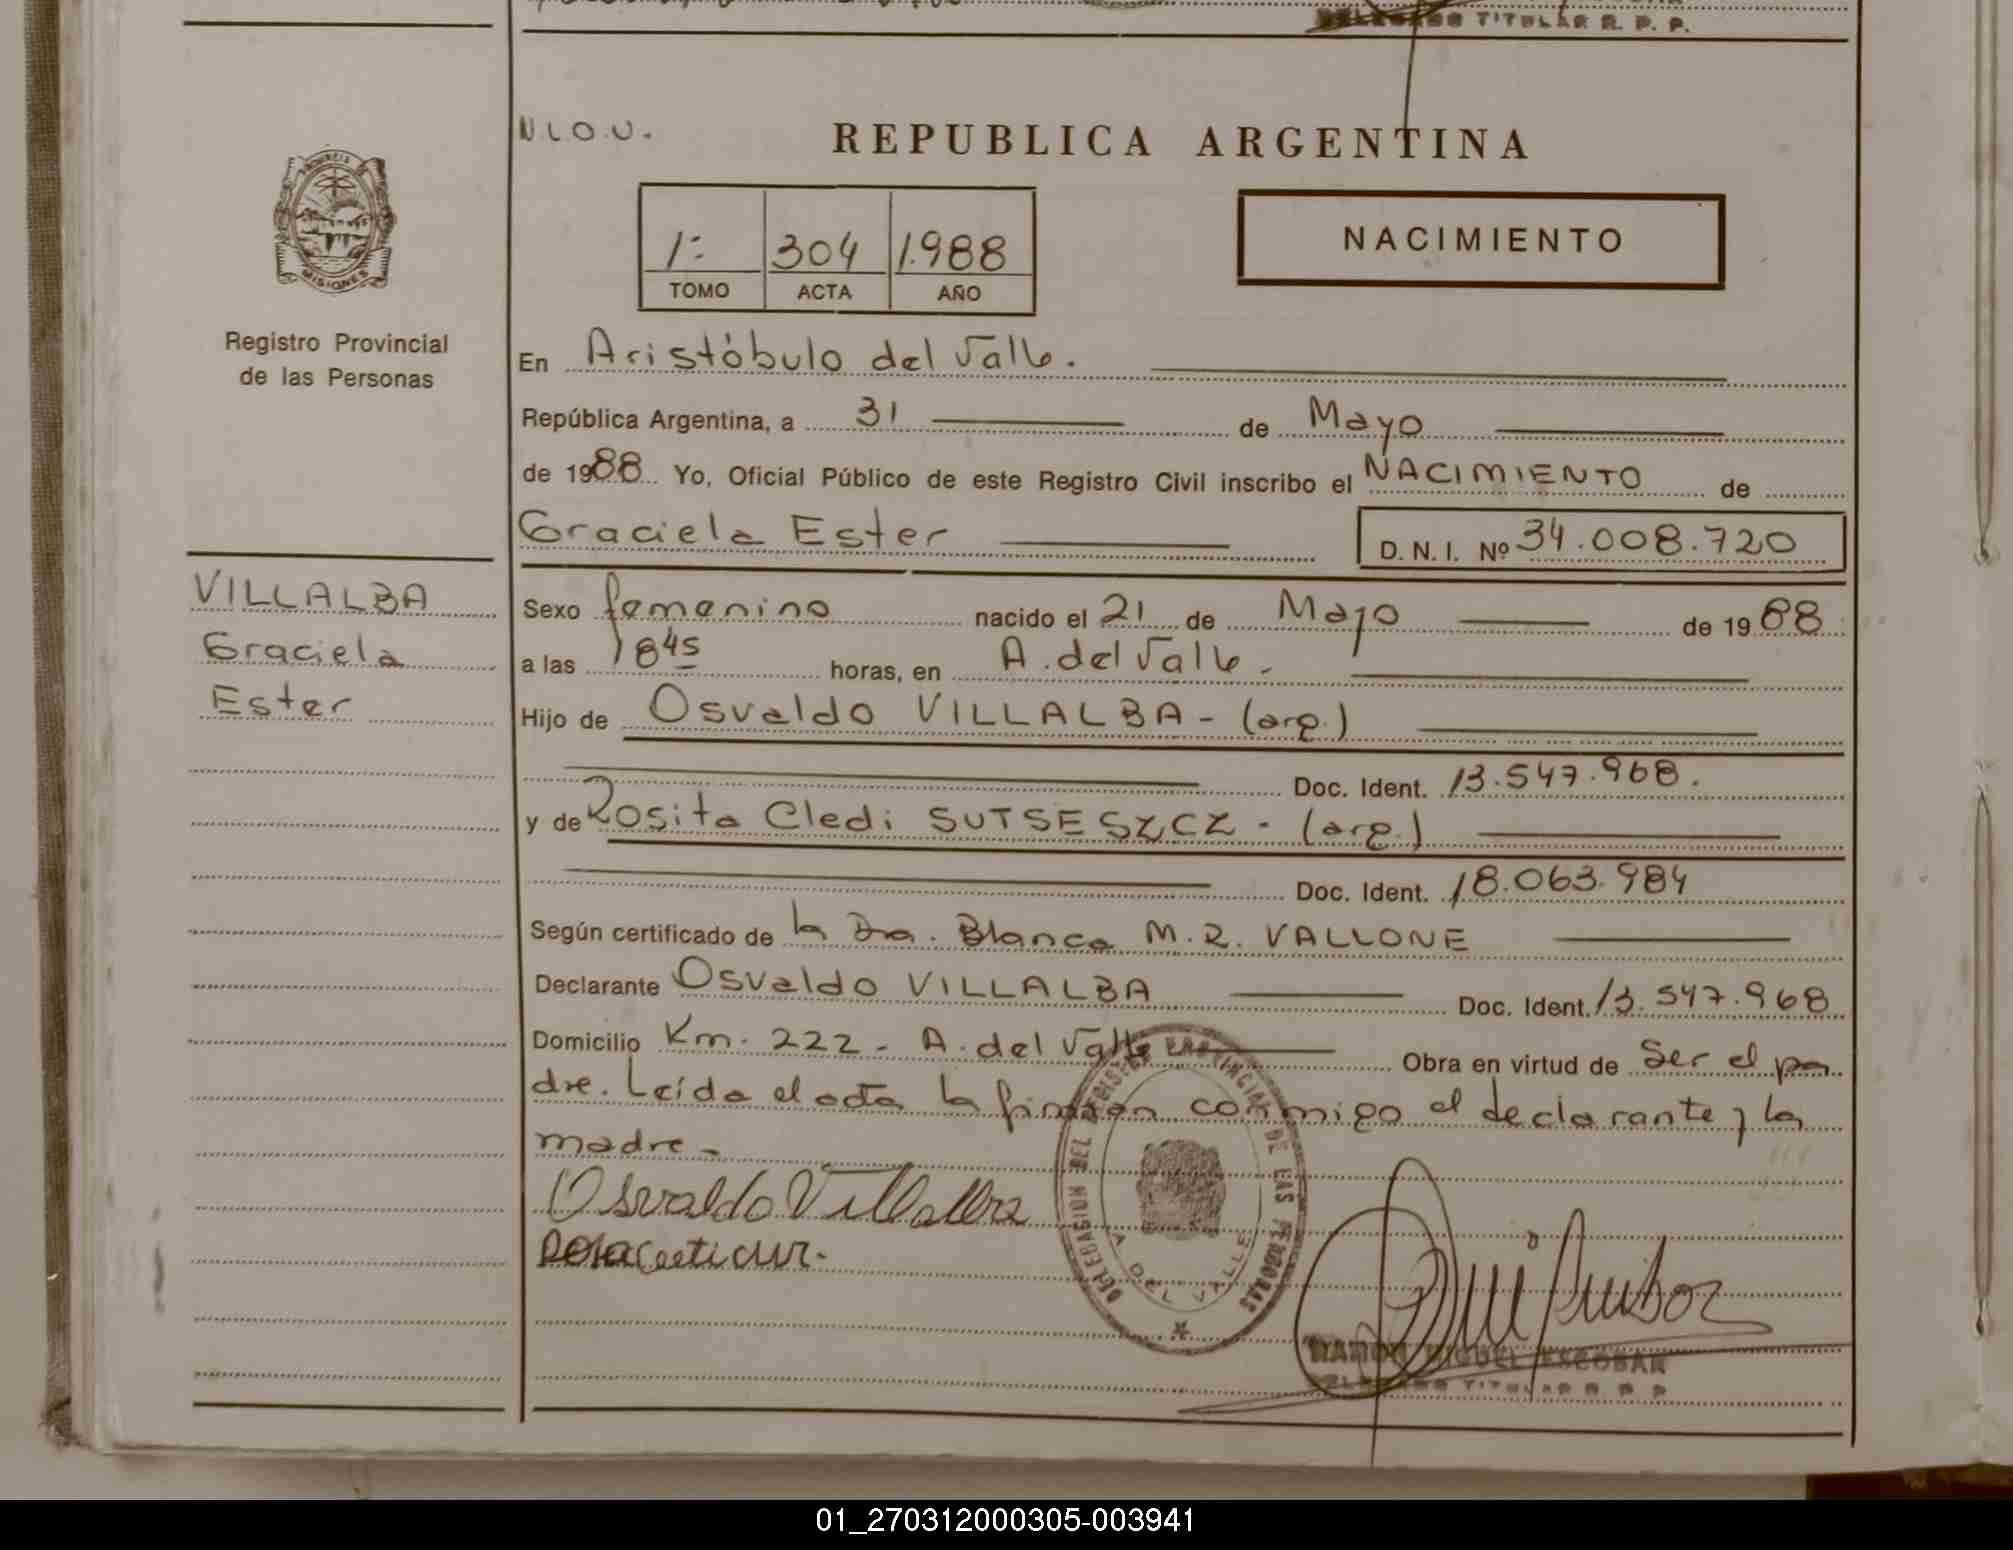 DELEGADO TITULAR R. P. P.
N.I.O.U.
REPUBLICA ARGENTINA
PROVINCIA DE
MISIONES
1º
304
1.988
TOMO
ACTA
AÑO
NACIMIENTO
Registro Provincial
de las Personas
En Aristóbulo del Valle.
República Argentina, a 31 de Mayo
de 1988 Yo, Oficial Público de este Registro Civil inscribo el NACIMIENTO de
Graciela Ester
D. N. I. Nº 34.008.720
VILLALBA
Graciela
Ester
Sexo femenino nacido el 21 de Mayo de 1988
a las 1845 horas, en A. del Valle.
Hijo de Osvaldo VILLALBA - (arg.)
Doc. Ident. 13.547.968.
y de Rosita Cledi SUTSESZCZ - (arg.)
Doc. Ident. 18.063.984
Según certificado de la Dra. Blanca M. R. VALLONE
Declarante Osvaldo VILLALBA Doc. Ident. 13.547.968
Domicilio Km. 222 - A. del Valle Obra en virtud de Ser el pa
dre. Leída el acta la firman conmigo el declarante y la
madre -
Osvaldo Villalba
DELEGACION DEL REGISTRO PROVINCIAL DE LAS PERSONAS
A. DEL VALLE
RAMON MIGUEL ESCOBAR
DELEGADO TITULAR R. P. P.
01_270312000305-003941